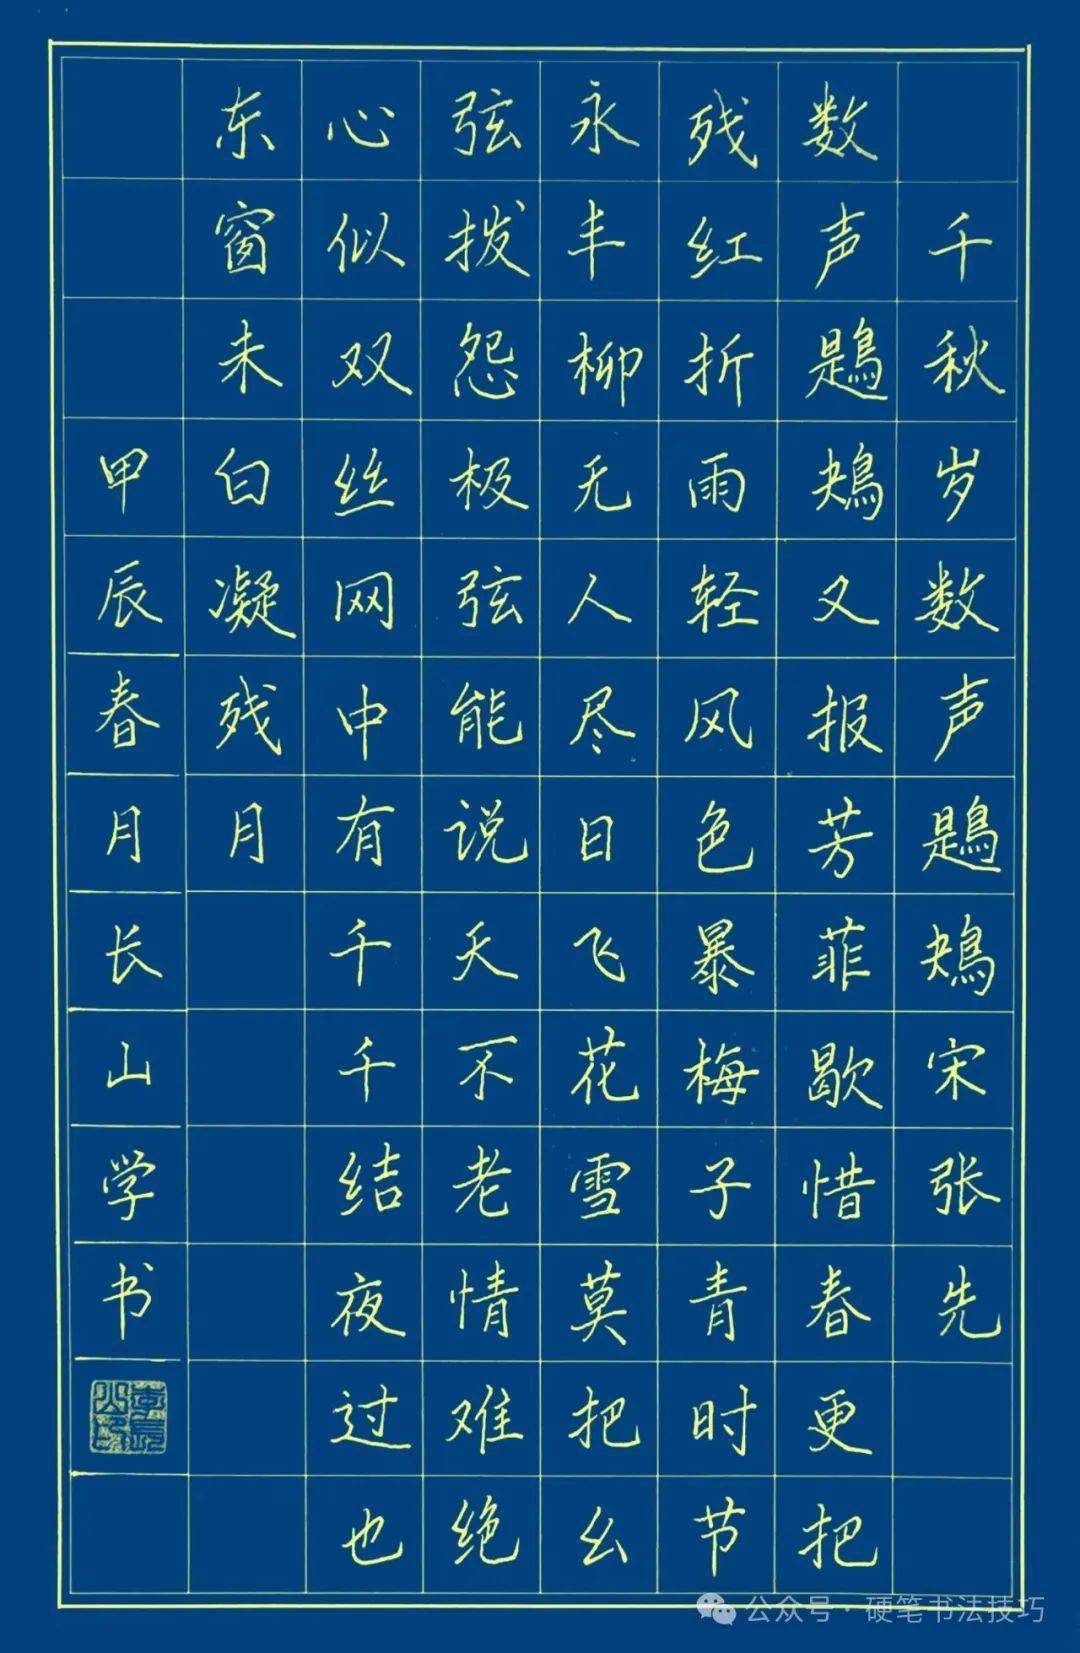 千秋岁数声鶗鴂宋张先
数声鶗鴂又报芳菲歇惜春更把
残红折雨轻风色暴梅子青时节
永丰柳无人尽日飞花雪莫把幺
弦拨怨极弦能说天不老情难绝
心似双丝网中有千千结夜过也
东窗未白凝残月
甲辰春月长山学书
公众号·硬笔书法技巧